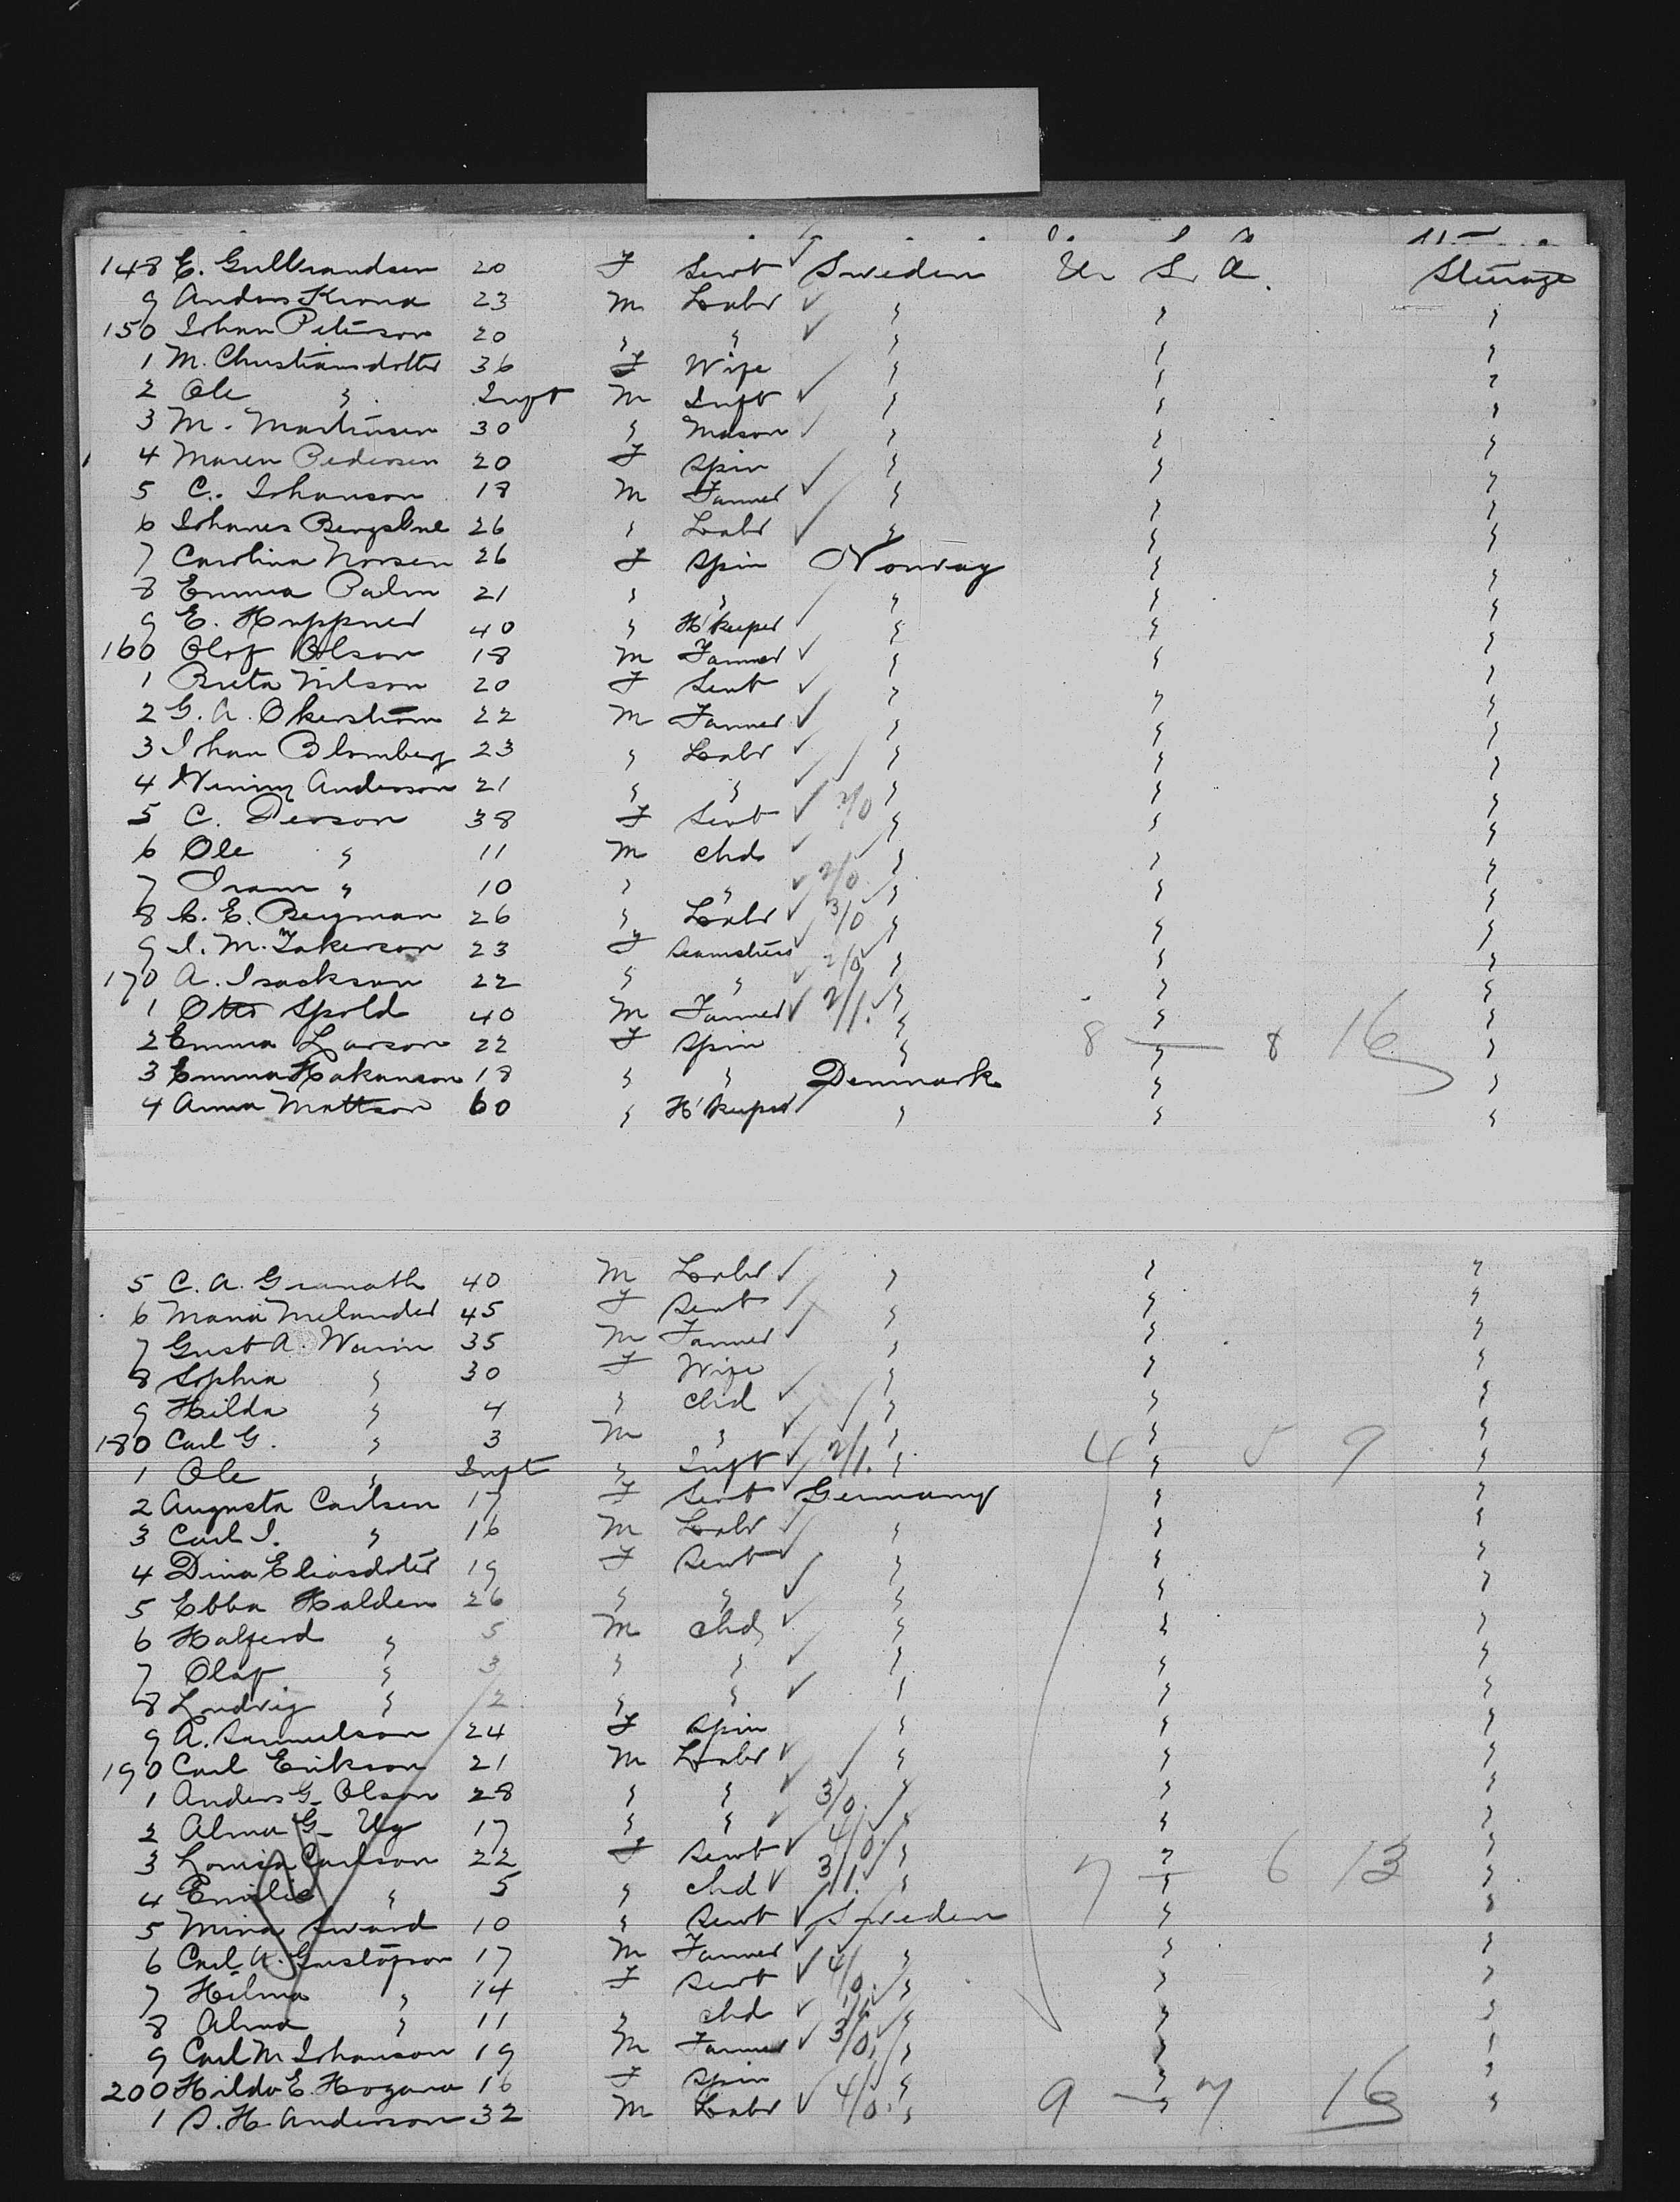 148 E. Gulbrandsen 20 F Servt Sweden U. S. A. Steerage
9 Anders Krona 23 M Labr " " "
150 Johan Peterson 20 " " " " "
1 M. Christiansdotter 36 F Wife " " "
2 Ole " Inft M Inft " " "
3 M. Martinsen 30 " Mason " " "
4 Maren Pedersen 20 F Spin " " "
5 C. Johanson 18 M Farmer " " "
6 Johanes 26 " Labr " " "
7 Carolina Norsen 26 F Spin Norway " "
8 Emma Palm 21 " " " " "
9 E. Huppner 40 " H'keeper " " "
160 Olof Olson 18 M Farmer " " "
1 Brita Nilson 20 F Servt " " "
2 G. A. Okerström 22 M Farmer " " "
3 Johan Blomberg 23 " Labr " " "
4 Anderson 21 " " " " "
5 C. Person 38 F Servt " " "
6 Ole " 11 M chd " " "
7 " 10 " " " " "
8 C. E. Bergman 26 " Labr 3/0 " " "
9 I. M. 23 F Seamstress 2/0 " " "
170 A. Isackson 22 " " " " "
1 Otto Spold 40 M Farmer 2/1. " " "
2 Emma Larson 22 F Spin " 8 — 8 16 "
3 Emma Hakanson 18 " " Denmark " "
4 Anna Mattson 60 " H'keeper " " "
5 C. A. Granath 40 M Labr " " "
6 Maria Melander 45 F Servt " " "
7 Gust A. Warin 35 M Farmer " " "
8 Sophia " 30 F Wife " " "
9 Hilda " 4 " chd " " "
180 Carl G. " 3 M " " " "
1 Ole " Inft " Inft 2/1. " 4 — 5 9 "
2 Augusta Carlsen 17 F Servt Germany " "
3 Carl J. " 16 M Labr " " "
4 Dina Eliasdoter 19 F Servt " " "
5 Ebba Halden 26 " " " " "
6 Halferd " 5 M chd " " "
7 Olaf " 3 " " " " "
8 Ludvig " 2 " " " " "
9 A. Samuelson 24 F Spin " " "
190 Carl Erikson 21 M Labr " " "
1 Anders G. Olson 28 " " 3/0. " " "
2 Alma G. 17 " " 4/0. " " "
3 Lovisa Carlson 22 F Servt 3/1. " " "
4 Emilie " 5 " chd " 7 — 6 13 "
5 Mina Sward 10 " Servt Sweden " "
6 Carl A. Gustafson 17 M Farmer 4/0. " " "
7 Hilma " 14 F Servt " " "
8 Alma " 11 " chd " " "
9 Carl M Johanson 19 M Farmer 3/0. " " "
200 Hilda E. 16 F Spin " " "
1 S. H. Anderson 32 M Labr 4/0. " 9 — 7 16 "